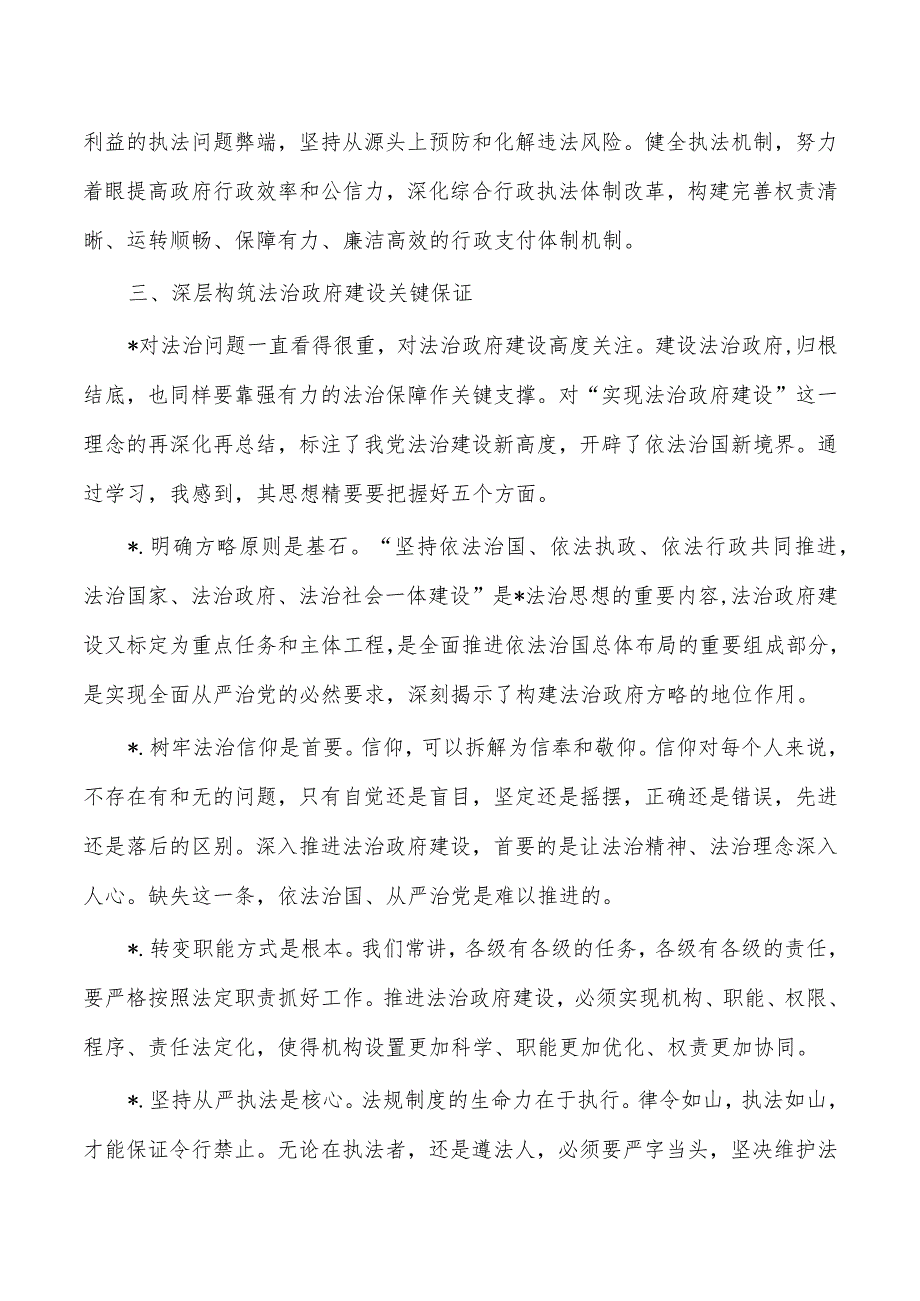 利益的执法问题弊端，坚持从源头上预防和化解违法风险。健全执法机制，努力
着眼提高政府行政效率和公信力，深化综合行政执法体制改革，构建完善权责清
晰、运转顺畅、保障有力、廉洁高效的行政支付体制机制。
三、深层构筑法治政府建设关键保证
*对法治问题一直看得很重，对法治政府建设高度关注。建设法治政府,归根
结底，也同样要靠强有力的法治保障作关键支撑。对“实现法治政府建设”这一
理念的再深化再总结，标注了我党法治建设新高度，开辟了依法治国新境界。通
过学习，我感到，其思想精要要把握好五个方面。
*.明确方略原则是基石。“坚持依法治国、依法执政、依法行政共同推进，
法治国家、法治政府、法治社会一体建设”是*法治思想的重要内容,法治政府建
设又标定为重点任务和主体工程,是全面推进依法治国总体布局的重要组成部分，
是实现全面从严治党的必然要求，深刻揭示了构建法治政府方略的地位作用。
*.树牢法治信仰是首要。信仰，可以拆解为信奉和敬仰。信仰对每个人来说，
不存在有和无的问题，只有自觉还是盲目，坚定还是摇摆，正确还是错误，先进
还是落后的区别。深入推进法治政府建设，首要的是让法治精神、法治理念深入
人心。缺失这一条，依法治国、从严治党是难以推进的。
*.转变职能方式是根本。我们常讲，各级有各级的任务，各级有各级的责任，
要严格按照法定职责抓好工作。推进法治政府建设，必须实现机构、职能、权限、
程序、责任法定化，使得机构设置更加科学、职能更加优化、权责更加协同。
*.坚持从严执法是核心。法规制度的生命力在于执行。律令如山，执法如山，
才能保证令行禁止。无论在执法者，还是遵法人，必须要严字当头，坚决维护法